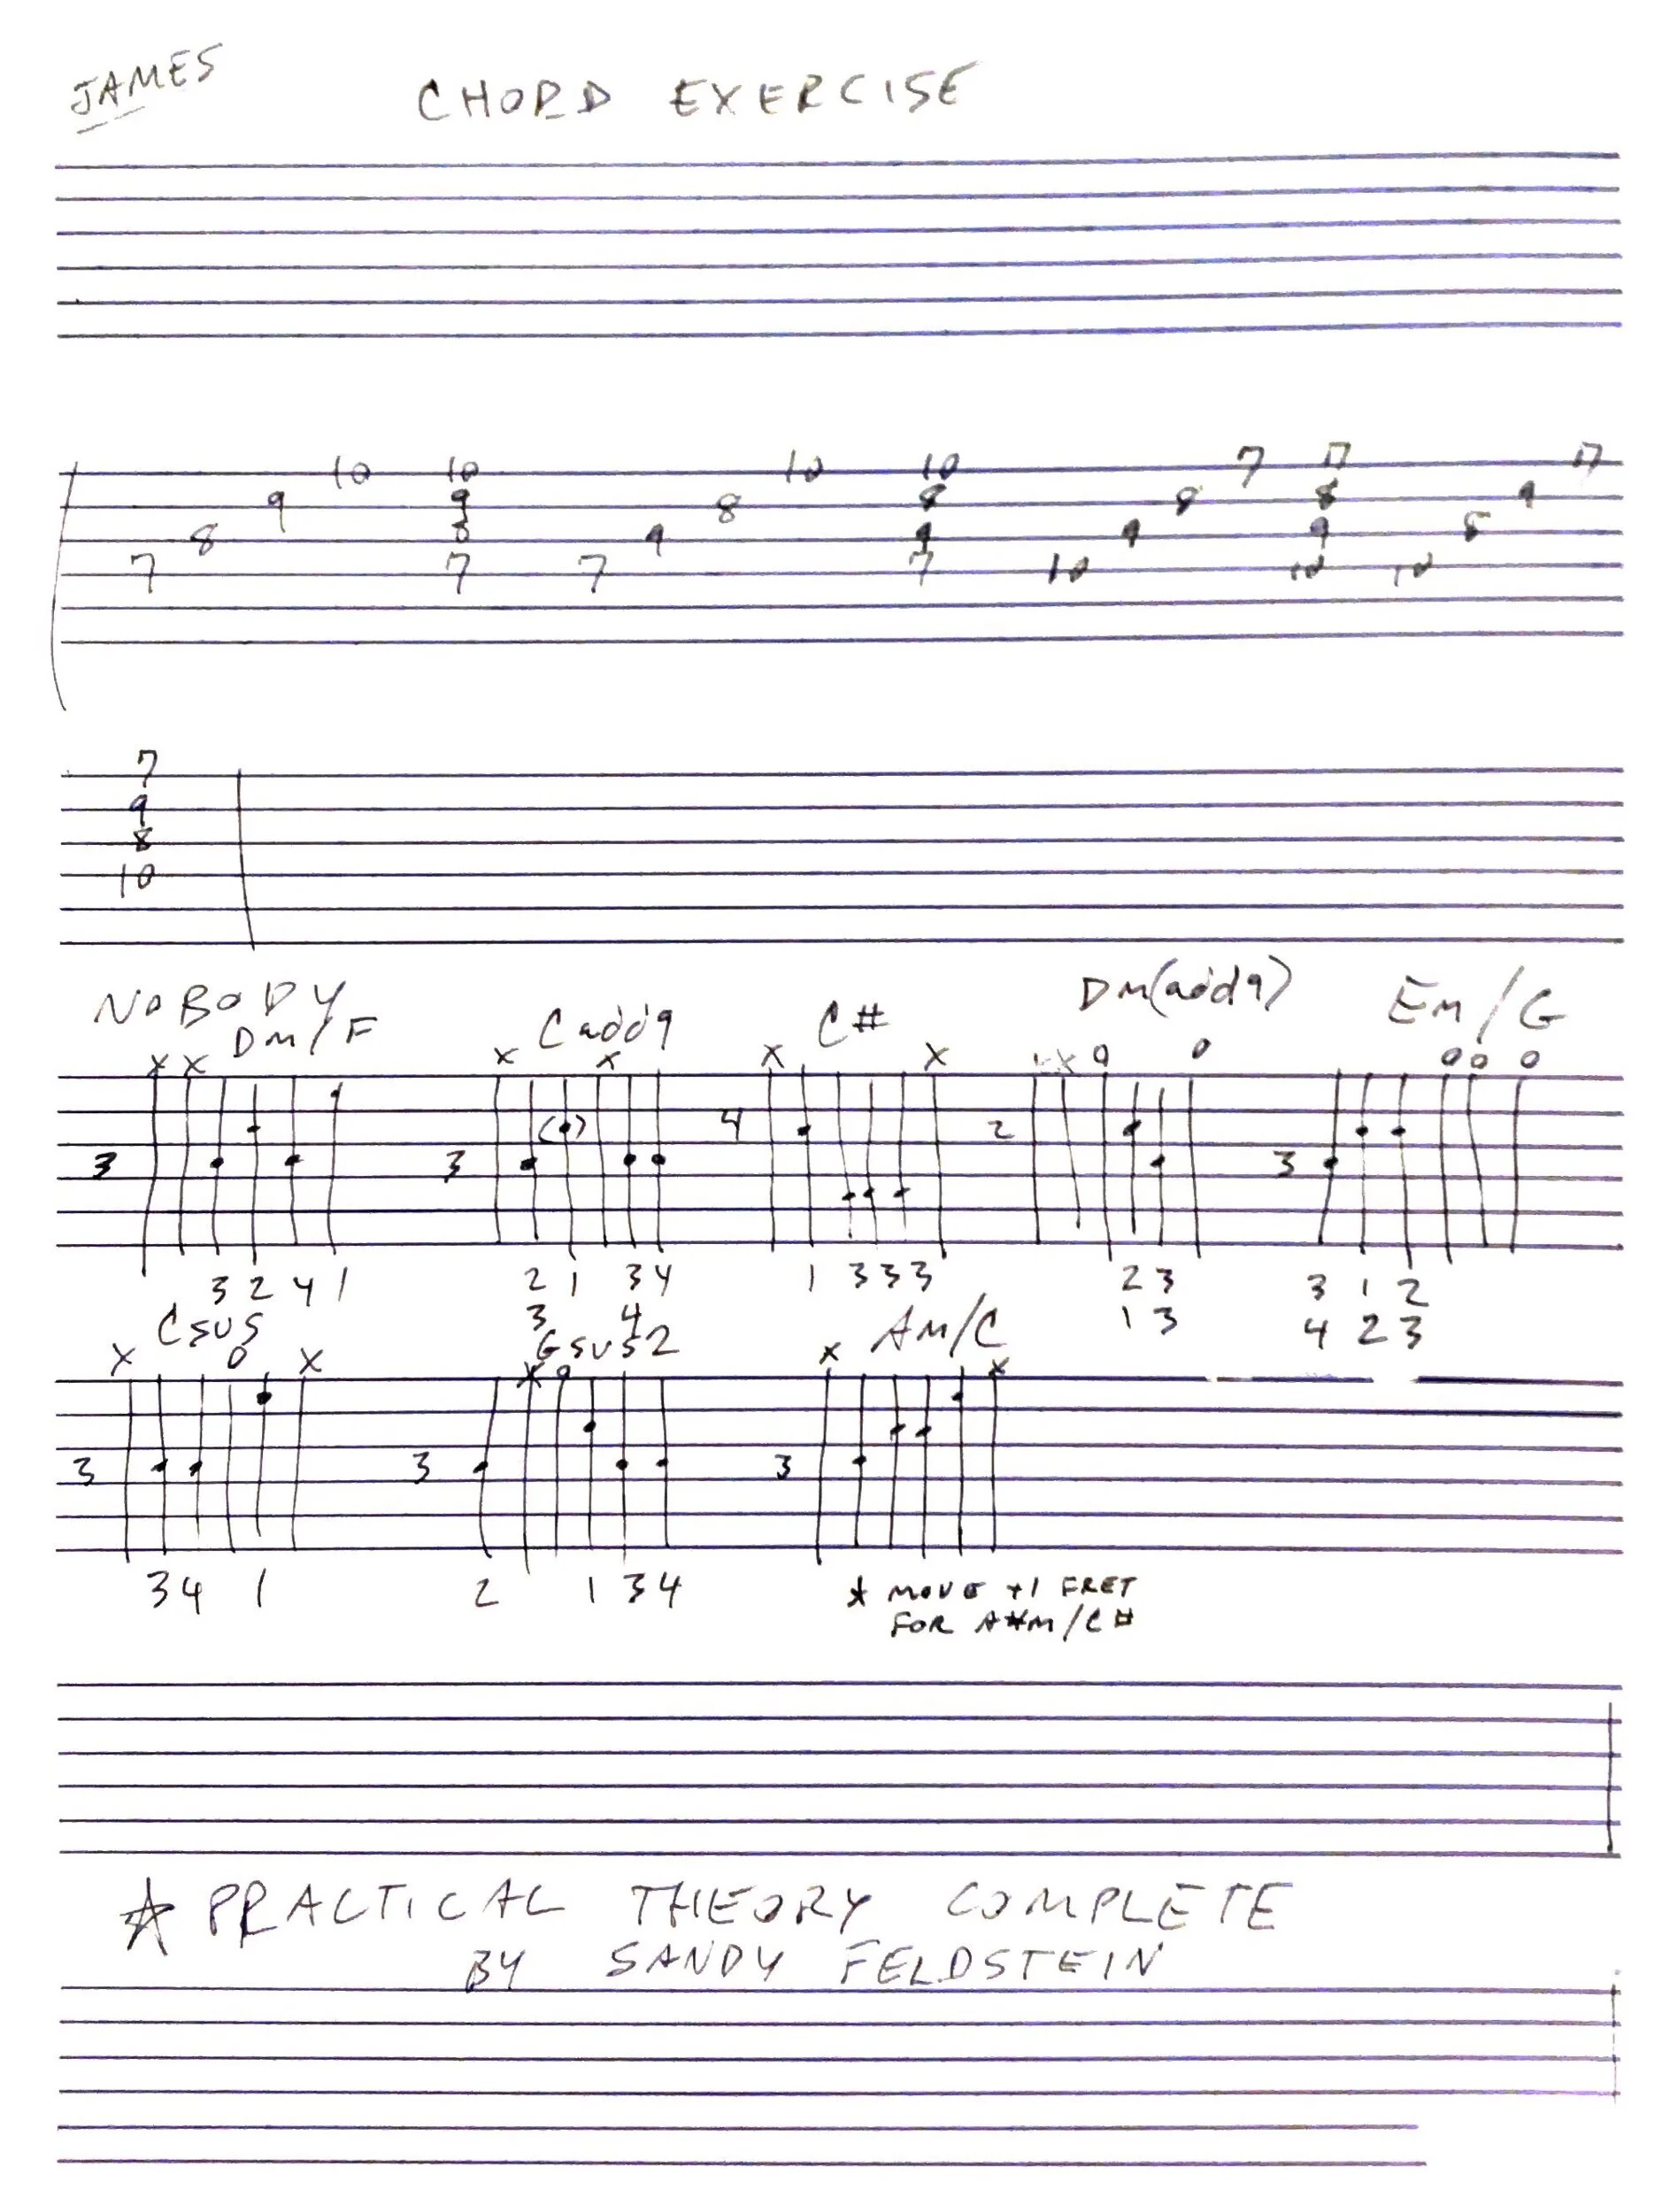 JAMES
CHORD EXERCISE
10 10 10 10 7 7 7
9 9 8 8 8 8 9
8 8 9 9 9 9 8
7 7 7 7 10 10 10
7
9
8
10
NOBODY
Dm/F Cadd9 C# Dm(add9) Em/G
x x x x x x x x o o o o o
3 3 4 2 3
(•)
3 2 4 1 2 1 3 4 1 3 3 3 2 3 3 1 2
3 4 1 3 4 2 3
Csus Gsus2 Am/C
x o x x o x x
3 3 3
3 4 1 2 1 3 4 * MOVE +1 FRET
FOR A#m/C#
☆ PRACTICAL THEORY COMPLETE
BY SANDY FELDSTEIN